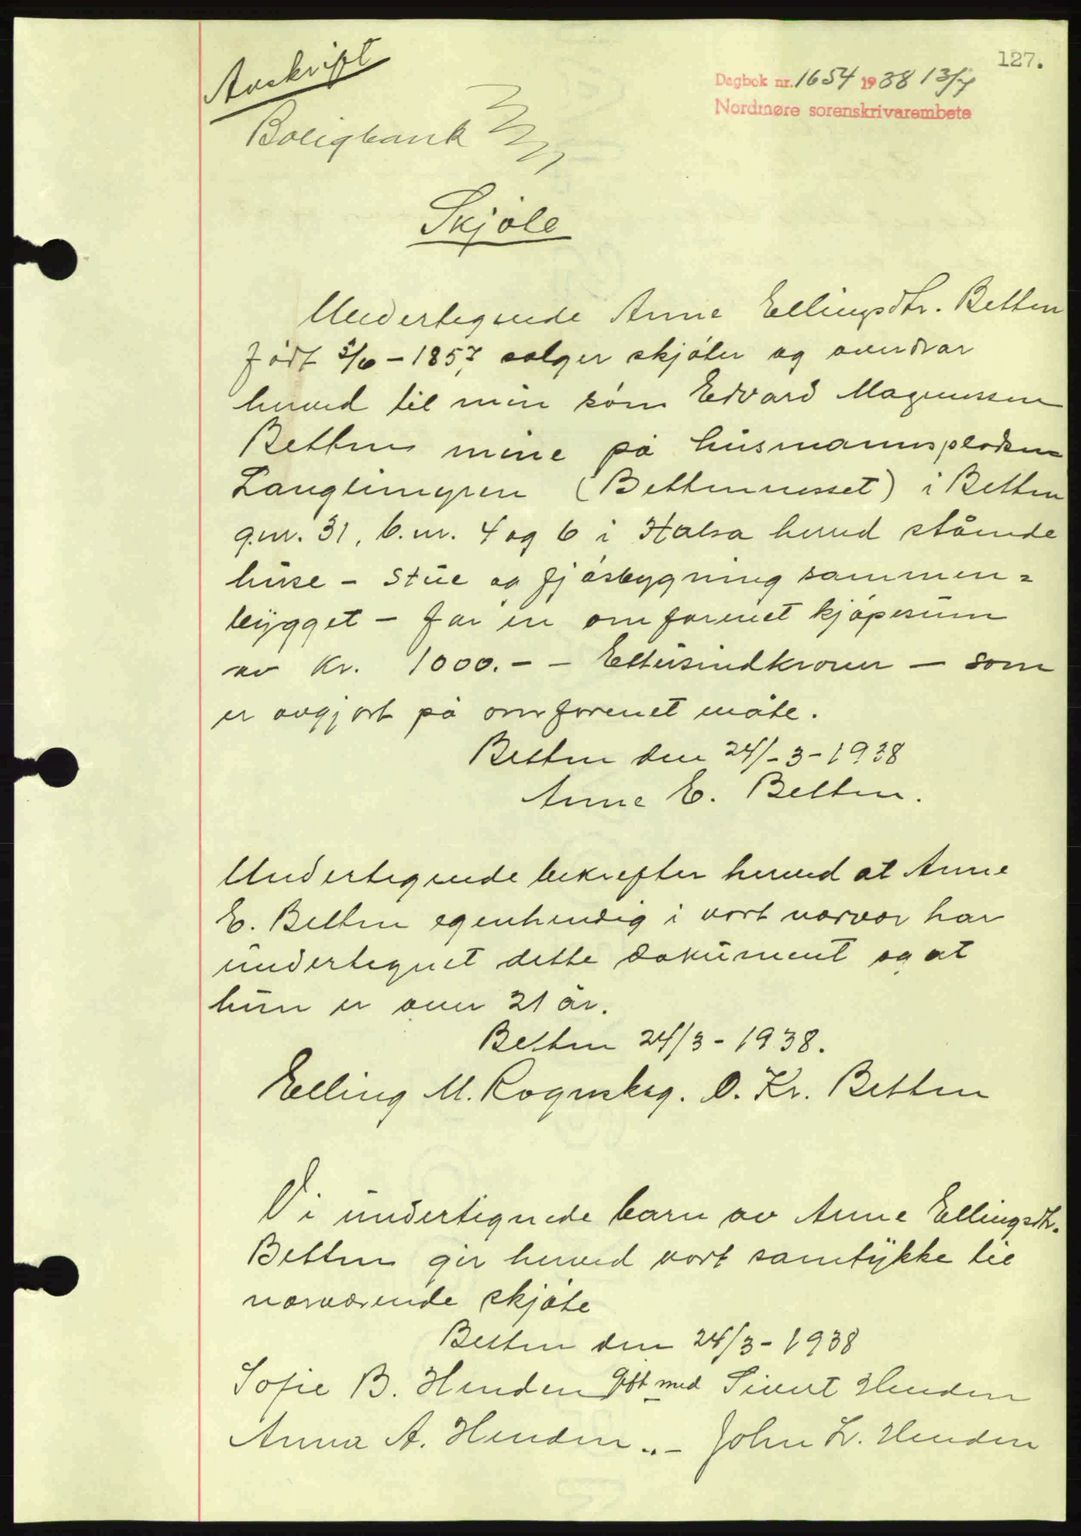 127.
Avskrift
Dagbok nr. 1654 1938 13/7
Nordmøre sorenskrivarembete
Boligbank
Skjøte
Undertegnede Anne Ellingsdtr. Betten
født 5/6 - 1857, selger skjøter og overdrar
herved til min søn Edvard Magnussen
Betten mine på husmannsplassen
Langlimyren (Bettennesset) i Betten
g.nr. 31, b.nr. 4 og 6 i Halsa herred stående
huse - Stue og fjøsbygning sammen-
bygget - for en omforenet kjøpesum
av Kr. 1000.- - Ettusindkroner - som
er avgjort på omforenet måte.
Betten den 24/-3-1938
Anne E. Betten.
Undertegnede bekrefter herved at Anne
E. Betten egenhendig i vort nærvær har
undertegnet dette dokument og at
hun er over 21 år.
Betten 24/3 - 1938.
Elling M. Rognskog. O. Kr. Betten
Vi undertegnede barn av Anne Ellingsdtr.
Betten gir herved vort samtykke til
nærværende skjøte
Betten den 24/3 - 1938
Sofie B. Henden gift med Sivert Henden
Anna A. Henden „ - John L. Henden